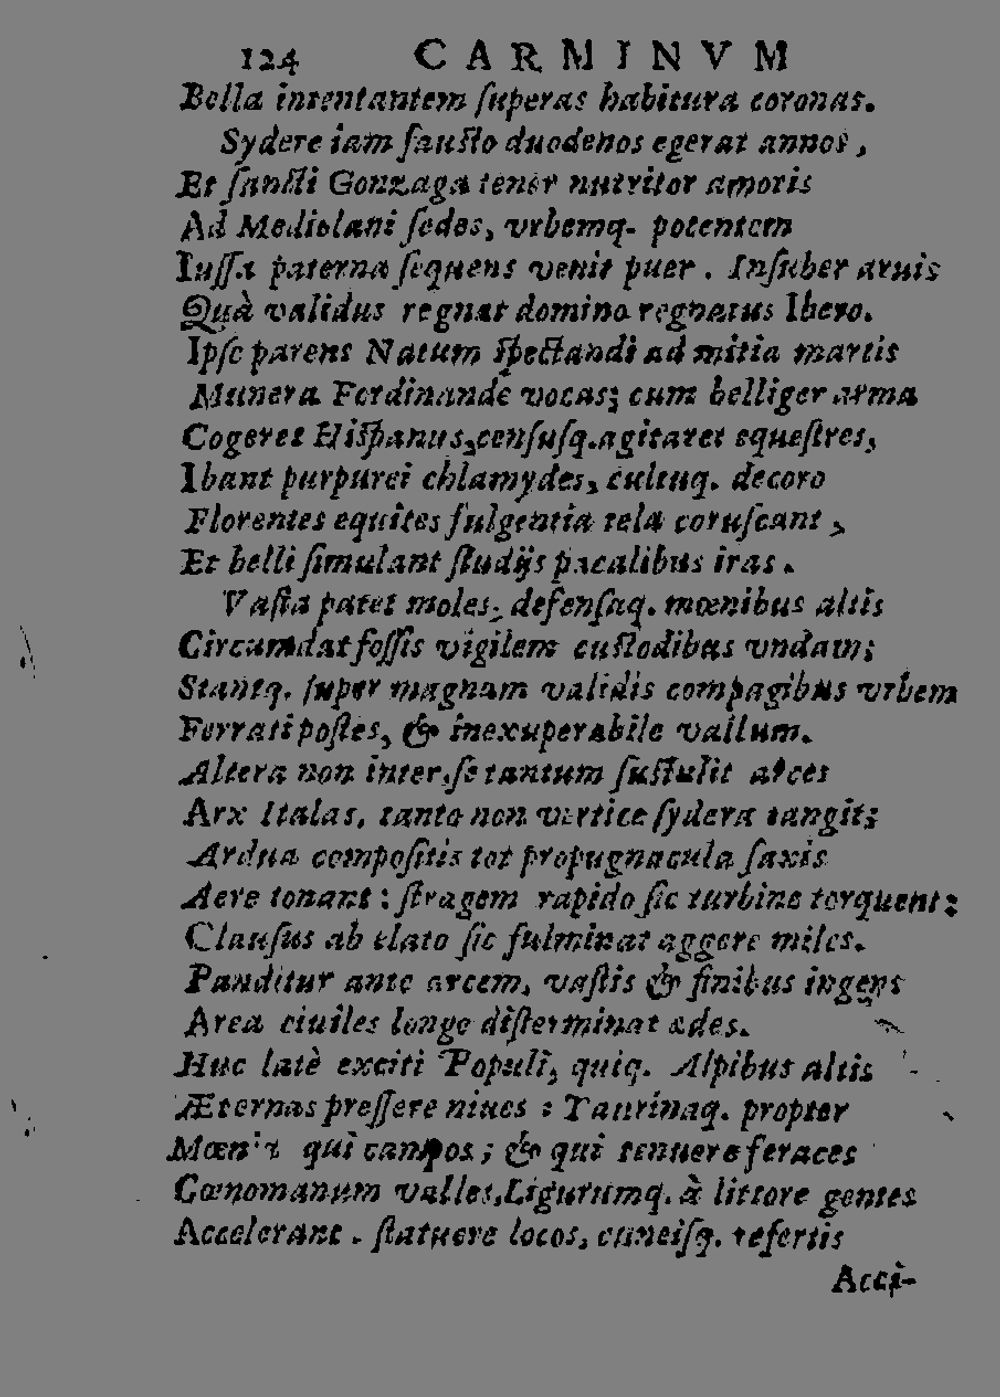 124 CARMINVM
Bella intentantem ſuperas habitura coronas.
Sydere iam fauſto duodenos egerat annos,
Et ſancti Gonzaga tener nutritor amoris
Ad Mediolani ſedes, vrbemq. potentem
Iuſſa paterna ſequens venit puer. Inſuber aruis
Quà validus regnat domino regnatus Ibero.
Ipſe parens Natum ſpectandi ad mitia martis
Munera Ferdinande vocas; cum belliger arma
Cogeret Hiſpanus, cenſuſq. agitaret equeſtres,
Ibant purpurei chlamydes, cultuq. decoro
Florentes equites fulgentia tela coruſcant,
Et belli ſimulant ſtudijs pacalibus iras.
Vaſta patet moles, defenſaq. mœnibus altis
Circumdat foſſis vigilem cuſtodibus vndam;
Stantq. ſuper magnam validis compagibus vrbem
Ferrati poſtes, & inexuperabile vallum.
Altera non inter ſe tantum ſuſtulit arces
Arx Italas, tanto non vertice ſydera tangit;
Ardua compoſitis tot propugnacula ſaxis
Aere tonant: ſtragem rapido ſic turbine torquent:
Clauſus ab elato ſic fulminat aggere miles.
Panditur ante arcem, vaſtis & finibus ingens
Area ciuiles longe diſterminat ædes.
Huc latè exciti Populi, quiq. Alpibus altis
Æternas preſſere niues: Taurinaq. propter
Mœnia qui campos; & qui tenuere feraces
Cœnomanum valles, Ligurumq. à littore gentes
Accelerant. ſtatuere locos, cuneiſq. refertis
Acci-